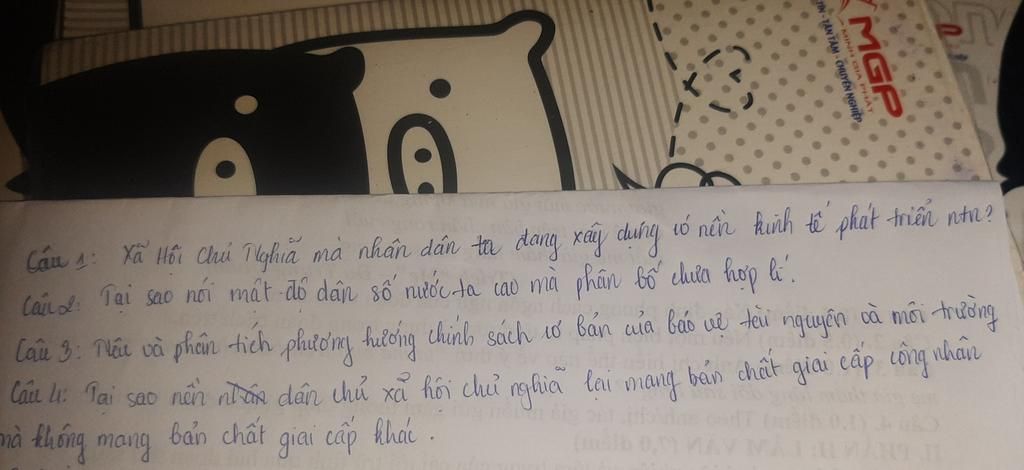 MGP
MINH GIA PHÁT
TÍN - TẬN TÂM - CHUYÊN NGHIỆP
Câu 1: Xã Hội Chủ Nghĩa mà nhân dân ta đang xây dựng có nền kinh tế phát triển ntn?
Câu 2: Tại sao nói mật độ dân số nước ta cao mà phân bố chưa hợp lí.
Câu 3: Nêu và phân tích phương hướng chính sách cơ bản của bảo vệ tài nguyên và môi trường
Câu 4: Tại sao nền dân chủ xã hội chủ nghĩa lại mang bản chất giai cấp công nhân
mà không mang bản chất giai cấp khác.